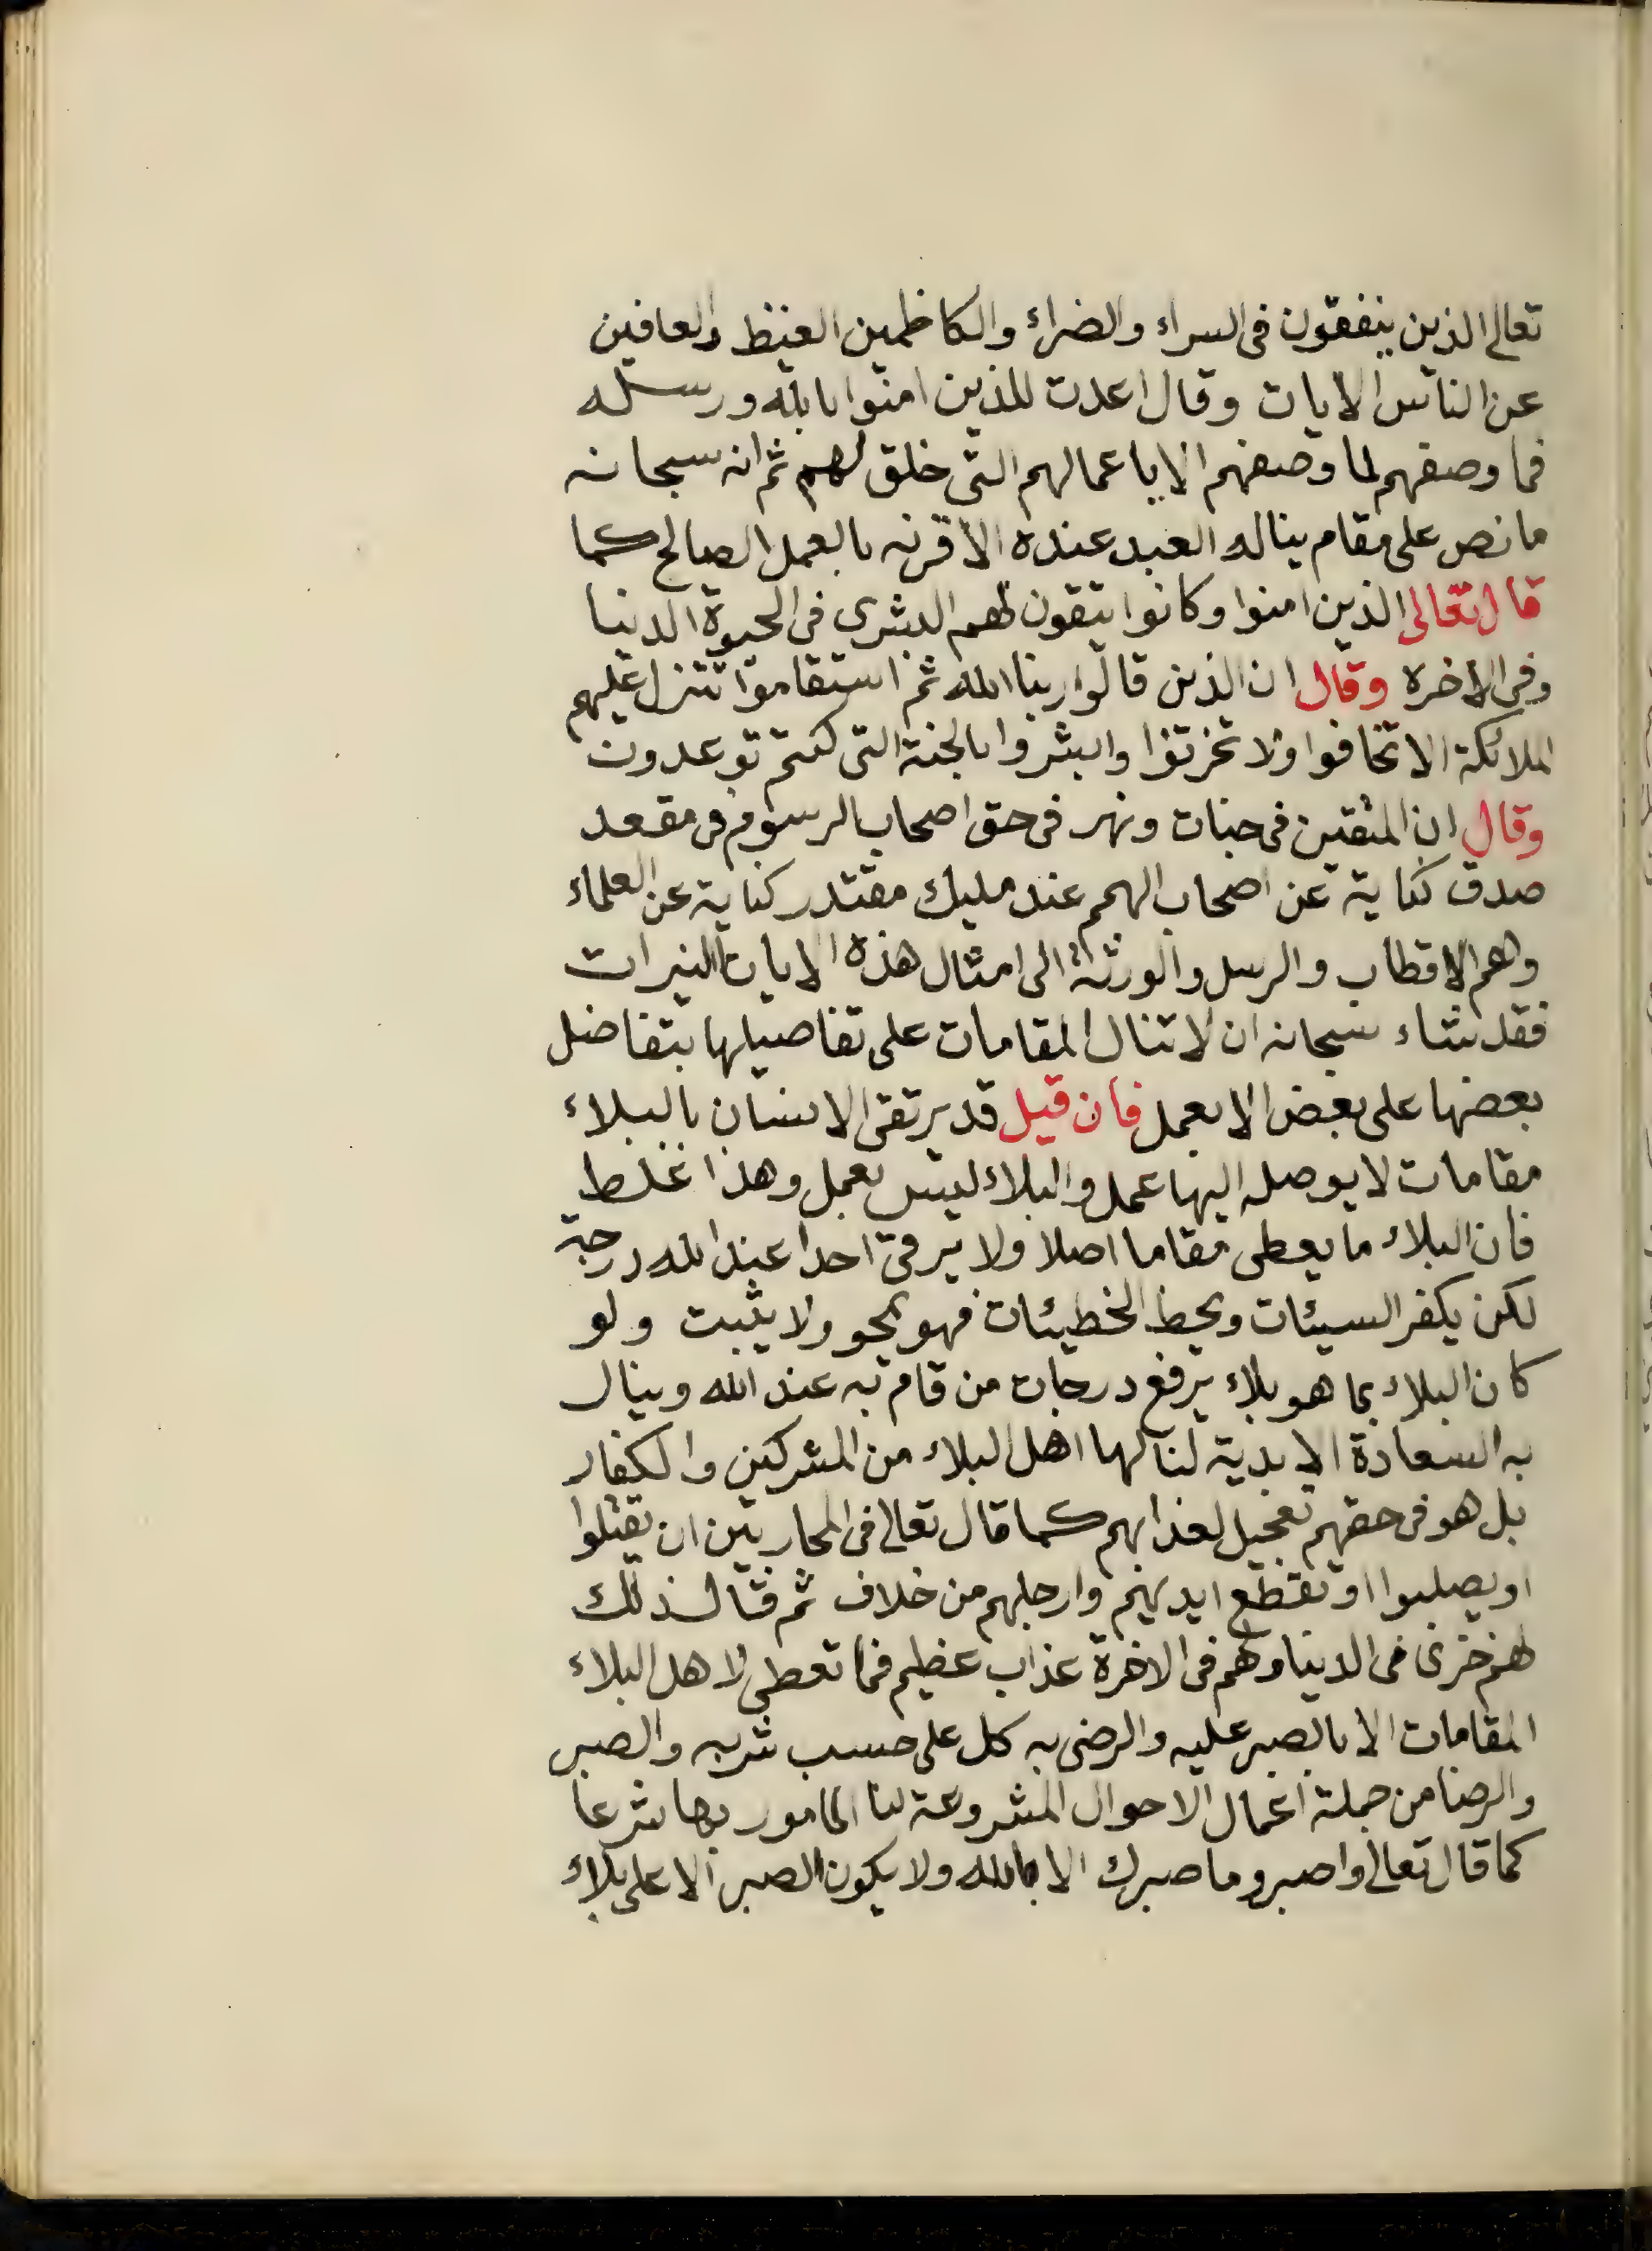 تعالى الذين ينفقون فى السراء والضراء والكاظمين الغيظ والعافين
عن الناس الايات وقال اعدت للذين امنوا بالله ورسله
فما وصفهم لما وصفهم الا باعمالهم التى خلق لهم ثم انه سبحانه
ما نص على مقام يناله العبد عنده الا قرنه بالعمل الصالح كما
قال تعالى الذين امنوا وكانوا يتقون لهم البشرى فى الحيوة الدنيا
وفى الاخرة وقال ان الذين قالوا ربنا الله ثم استقاموا تتنزل عليهم
الملائكة الا تخافوا ولا تحزنوا وابشروا بالجنة التى كنتم توعدون
وقال ان المتقين فى جنات ونهر فى حق اصحاب الرسوم فى مقعد
صدق كناية عن اصحاب الهمم عند مليك مقتدر كناية عن العلماء
وهم الاقطاب والرسل والورثة الى امثال هذه الايات النيرات
فقد شاء سبحانه ان لا تنال المقامات على تفاصيلها بتفاضل
بعضها على بعض الا بعمل فان قيل قد يرتقى الانسان بالبلاء
مقامات لا يوصله اليها عمل والبلاء ليس بعمل وهذا غلط
فان البلاء ما يعطى مقاما اصلا ولا يرقى احدا عند الله درجة
لكن يكفر السيئات ويحط الخطيئات فهو يمحو ولا يثبت ولو
كان البلاء بما هو بلاء يرفع درجات من قام به عند الله وينال
به السعادة الابدية لنالها اهل البلاء من المشركين والكفار
بل هو فى حقهم تعجيل لعذابهم كما قال تعالى فى المحاربين ان يقتلوا
او يصلبوا او تقطع ايديهم وارجلهم من خلاف ثم قال ذلك
لهم خزى فى الدنيا ولهم فى الاخرة عذاب عظيم فما تعطى لاهل البلاء
المقامات الا بالصبر عليه والرضى به كل على حسب شربه والصبر
والرضا من جملة اعمال الاحوال المشروعة لنا المامور بها شرعا
كما قال تعالى واصبر وما صبرك الا بالله ولا يكون الصبر الا على بلاء